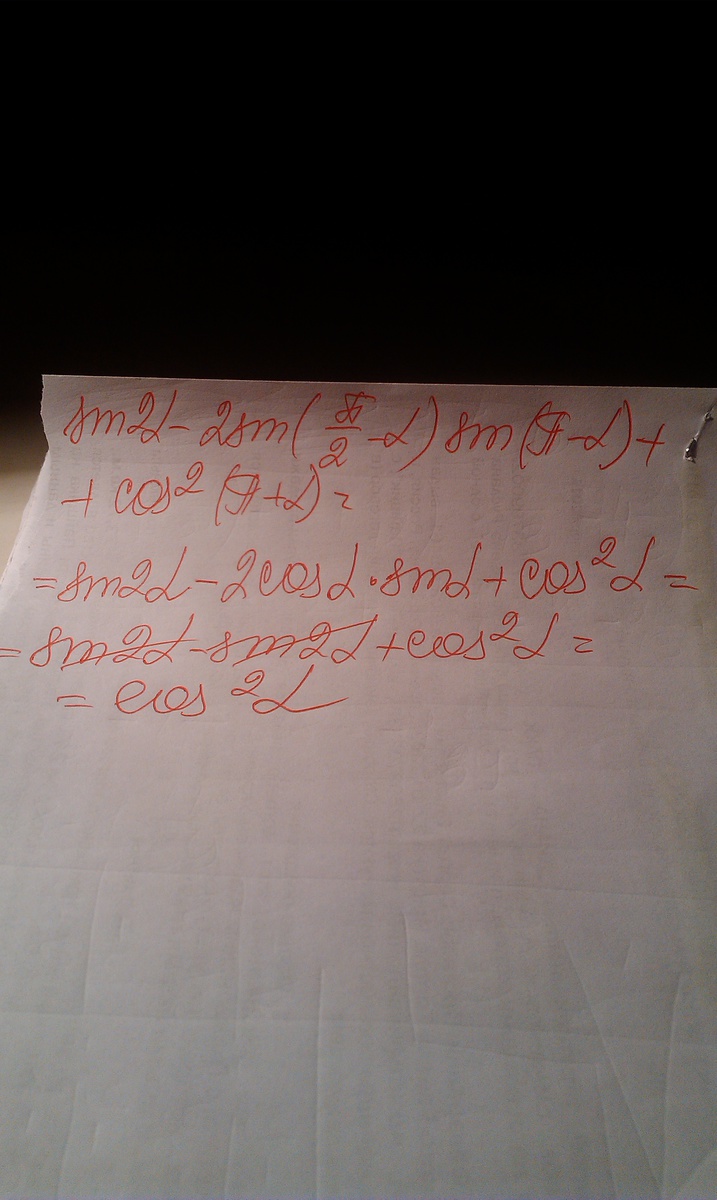 sin2α - 2sin(π/2 - α) sin(π - α) +
+ cos²(π + α) =
= sin2α - 2cosα · sinα + cos²α =
= sin2α - sin2α + cos²α =
= cos²α